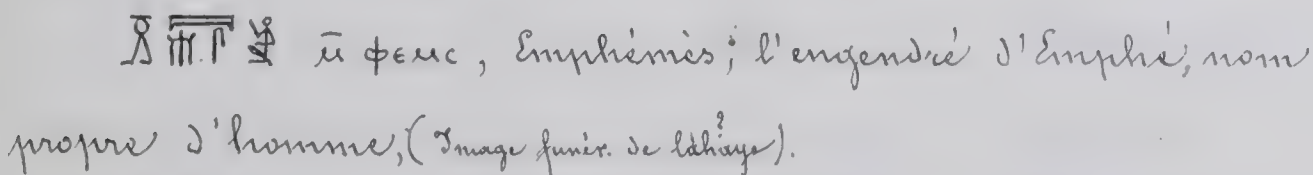 ⲙ̄ ⲫⲉⲙⲥ, Emphémès; l'engendré d'Emphé, nom
propre d'homme, (Image funér. de lahaye?).